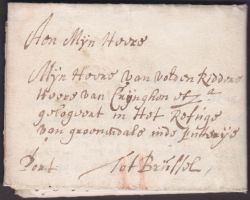 Aen Mijn Heere
Mijn Heere van volden Ridder
Heere van Crijnghen etza
gelogeert in Het Refuge
van groenendale inde
Port Tot Brussel,